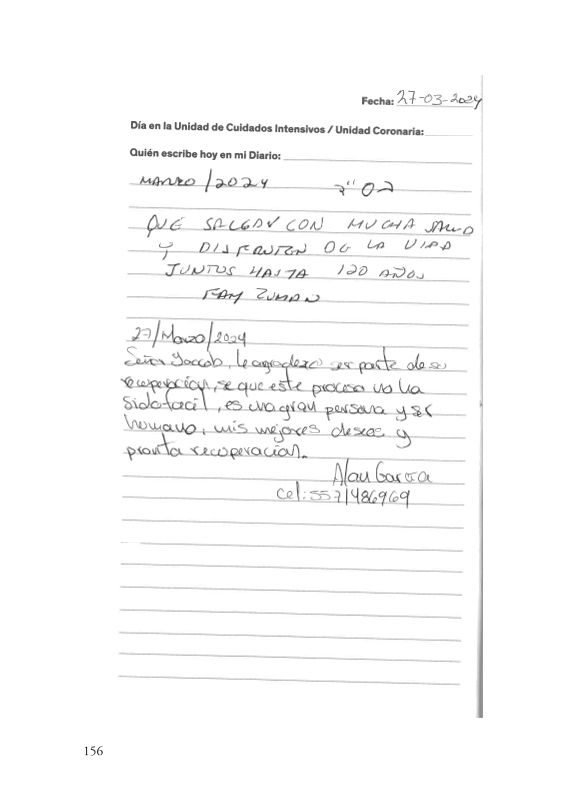 Fecha: 27-03-2024
Día en la Unidad de Cuidados Intensivos / Unidad Coronaria:
Quién escribe hoy en mi Diario:
MARZO/2024
QUE SALGAN CON MUCHA SALUD
Y DISFRUTEN DE LA VIDA
JUNTOS HASTA 120 AÑOS
FAM ZUMAN
27/Marzo/2024
Señor Jaccob, le agradezco ser parte de su
recuperación, se que este proceso no ha
sido facil, es una gran persona y ser
humano, mis mejores deseos y
pronta recuperación.
Alan Garcia
Cel: 5571486969
156